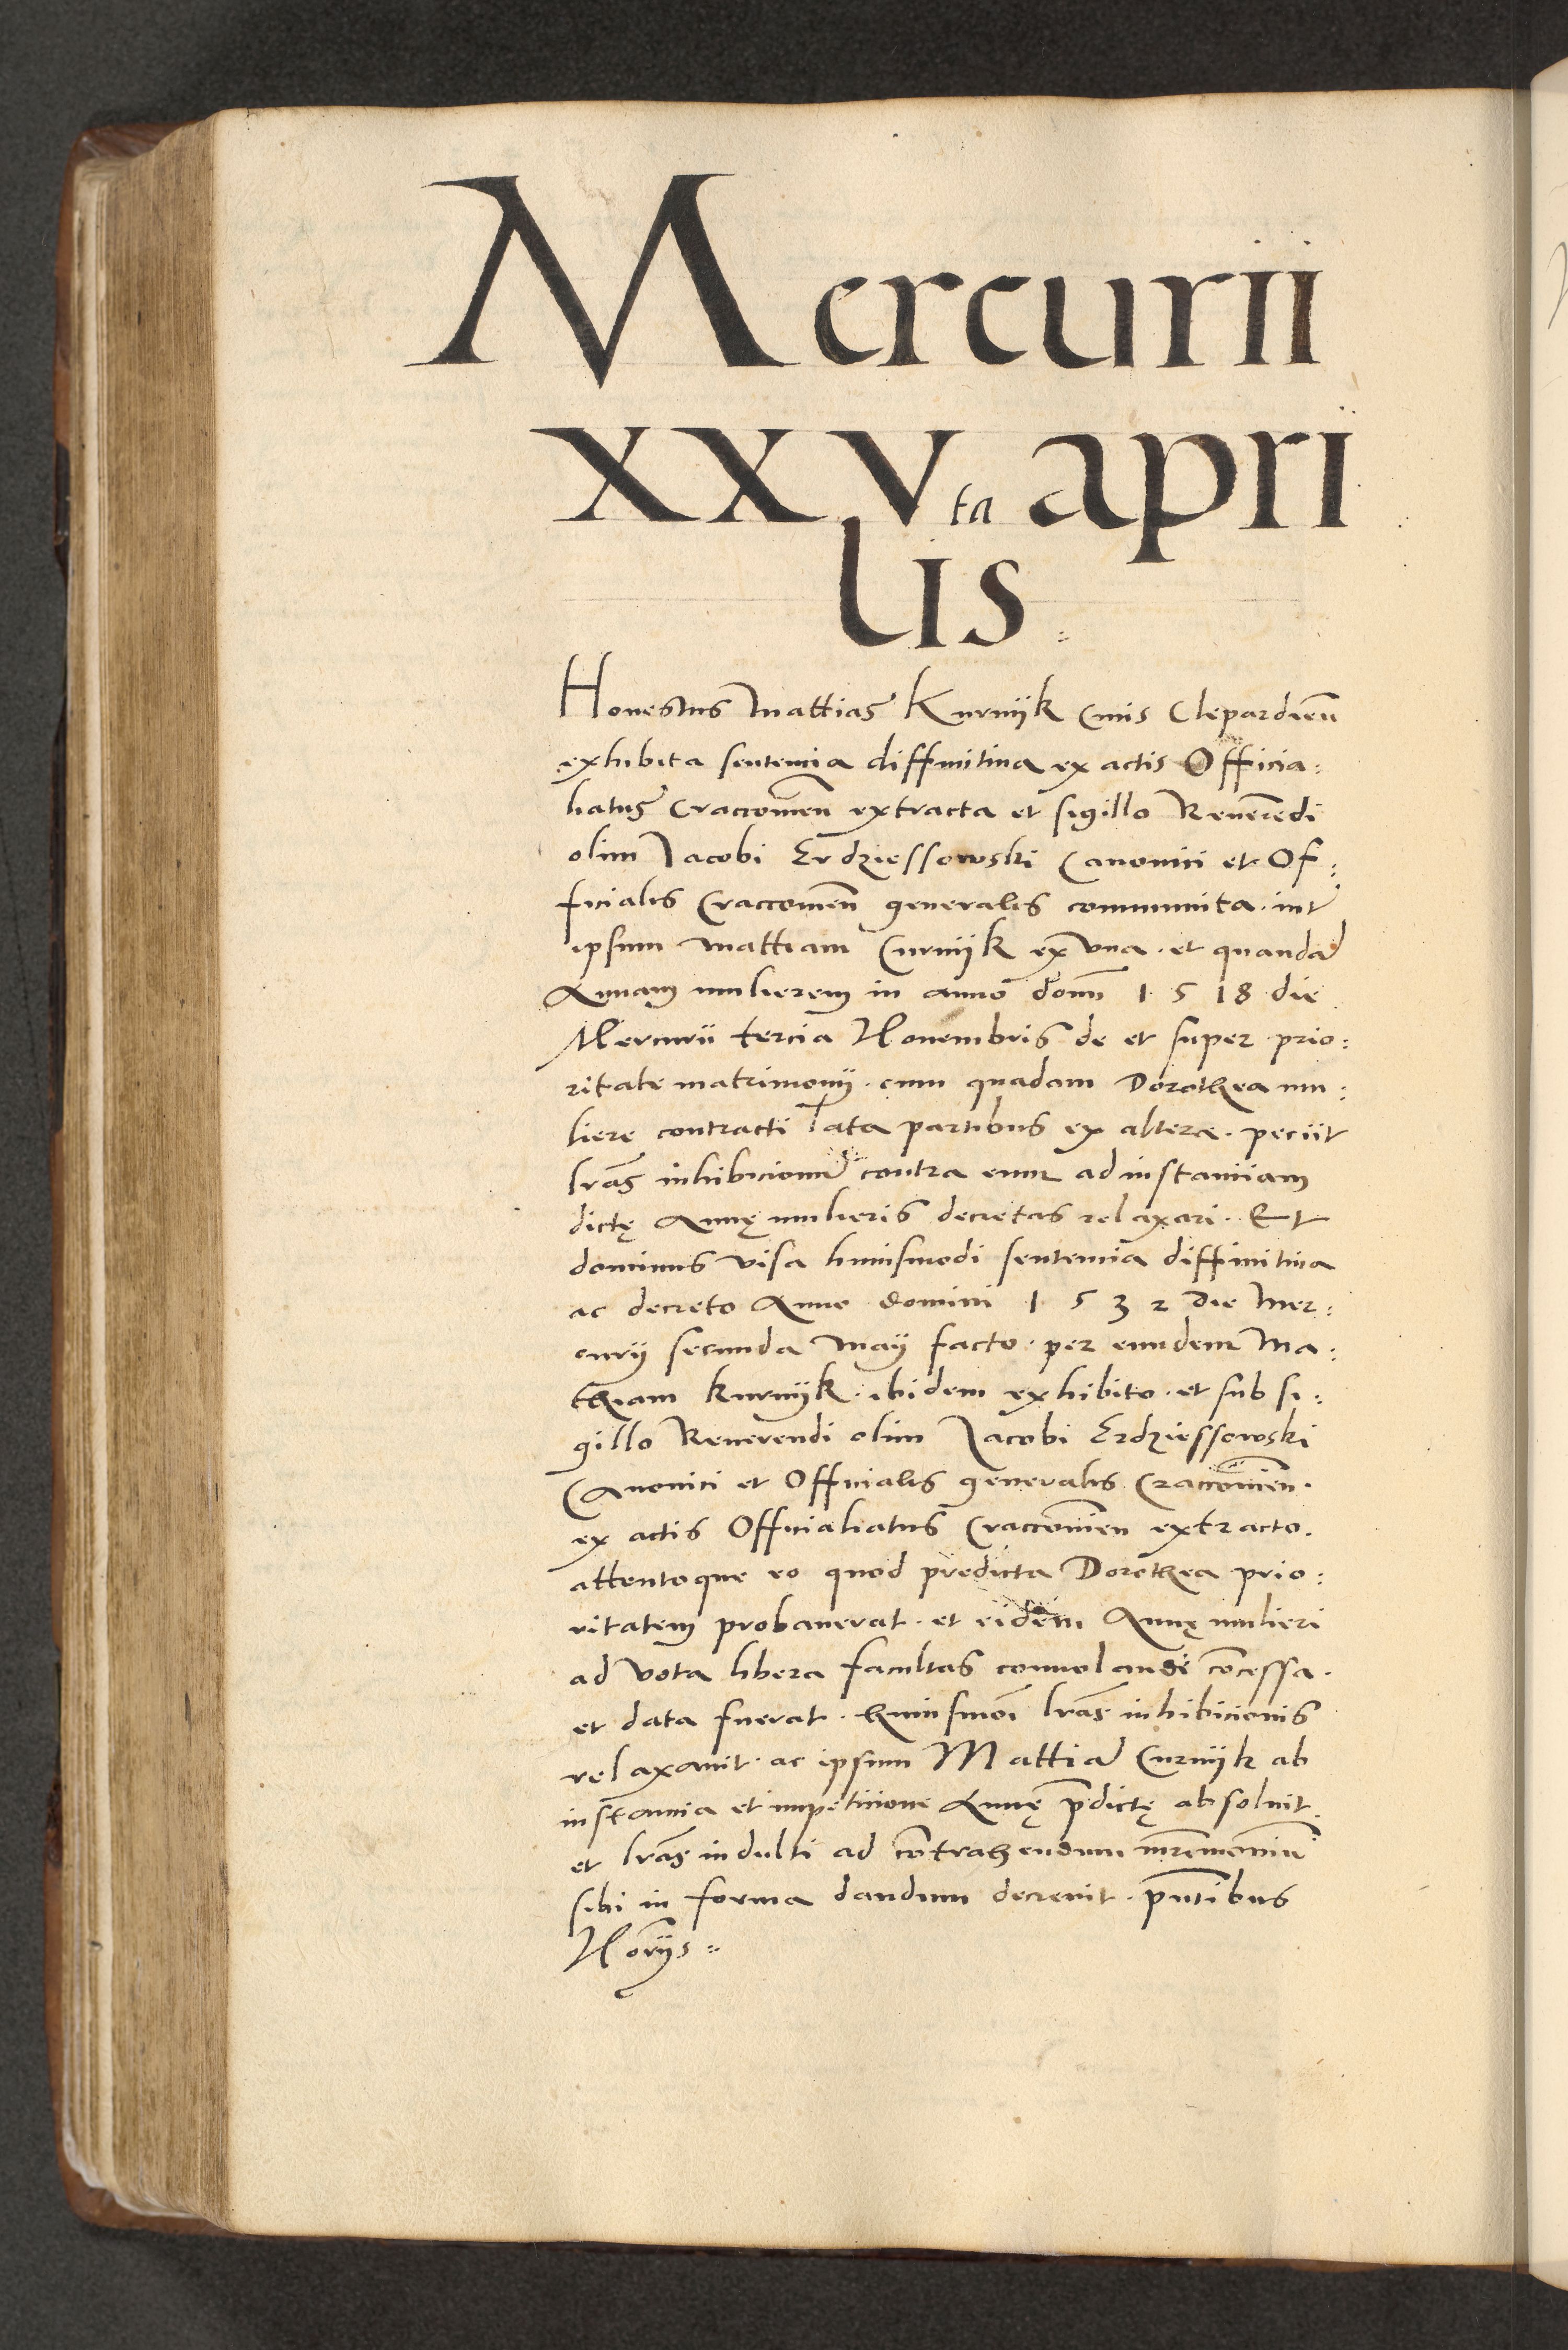 Mercurii
XXV ta apri
lis :
Honestus Mattias Kurnijk Civis Clepardieñ
exhibita sentencia diffinitiva ex actis Officia:
liatus Craccovieñ extracta et sigillo Reverendi
olim Iacobi Erdziessowski Canonici et Of:
ficialis Craccovieñ generalis communita. int̃
ipsum Mattiam Curnijk ex una. et quandã
Annam mulierem in anno domĩ 1518 die
Mercurii tercia Novembris de et super prio:
ritate matrimonij. cum quadam Dorothea mu:
liere contracti lata partibus ex altera. peciit
lrãs inhibicionũ contra eum ad instanciam
dictę Annę mulieris decretas relaxari. Et
dominus visa huiusmodi sentencia diffinitiva
ac decreto Anno domini 1532 die Mer:
curij secunda Maij facto. per eundem Ma:
thiam Kurnijk. ibidem exhibito. et sub si:
gillo Reverendi olim Iacobi Erdziessowski
Canonici et Officialis generalis Craccovieñ.
ex actis Officialiatus Craccovien extracto.
attentoque eo quod predicta Dorothea prio:
ritatem probaverat. et eidem Annę mulieri
ad vota libera facultas convolandi cõcessa.
et data fuerat. huiusmõi lrãs inhibicionis
relaxavit. ac ipsum Mattiã Curnijk ab
instancia et impeticione Annę p̃dictę absolvit.
et lrãs indulti ad cõtrahendum mr̃emoniũ
sibi in forma dandum decrevit. pñtibus
Nor̃ijs :